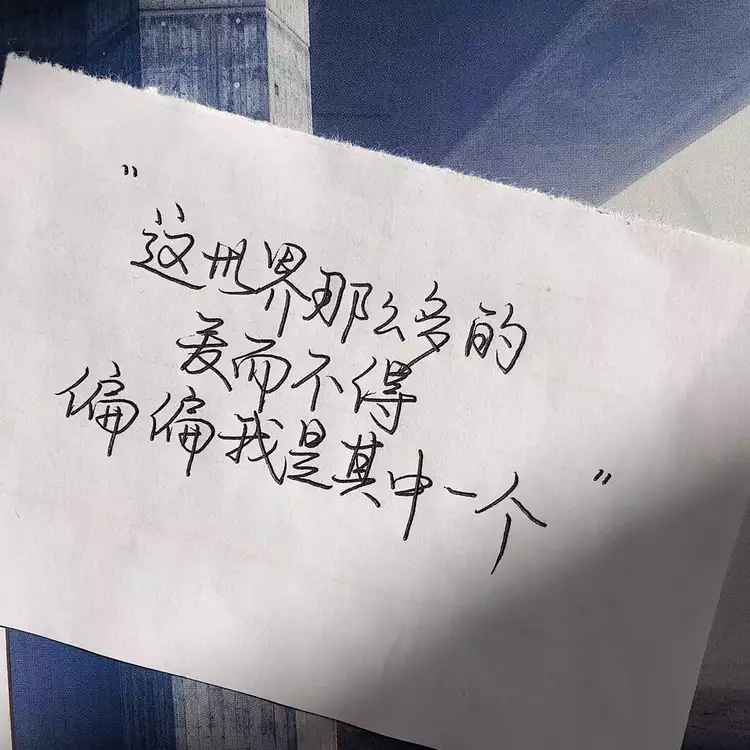 "这世界那么多的
爱而不得
偏偏我是其中一个"